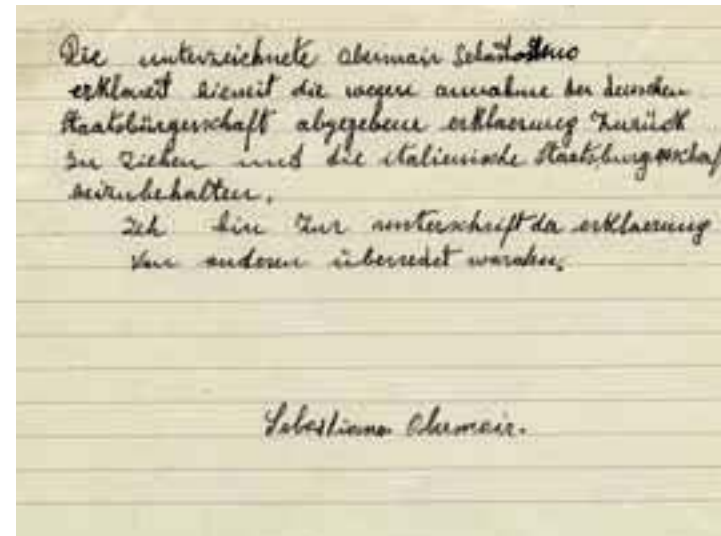 Die unterzeichnete Obermair Sebastiano
erklaert hiemit die wegen annahme der deuschen
Staatsbürgerschaft abgegebene erklaerung Zurück
zu Ziehen und die italienische Staatsburgerschaf
beizubehalten.
Ich bin Zur unterschrift der erklaerung
von anderen überredet worden.
Sebastiano Obermair.